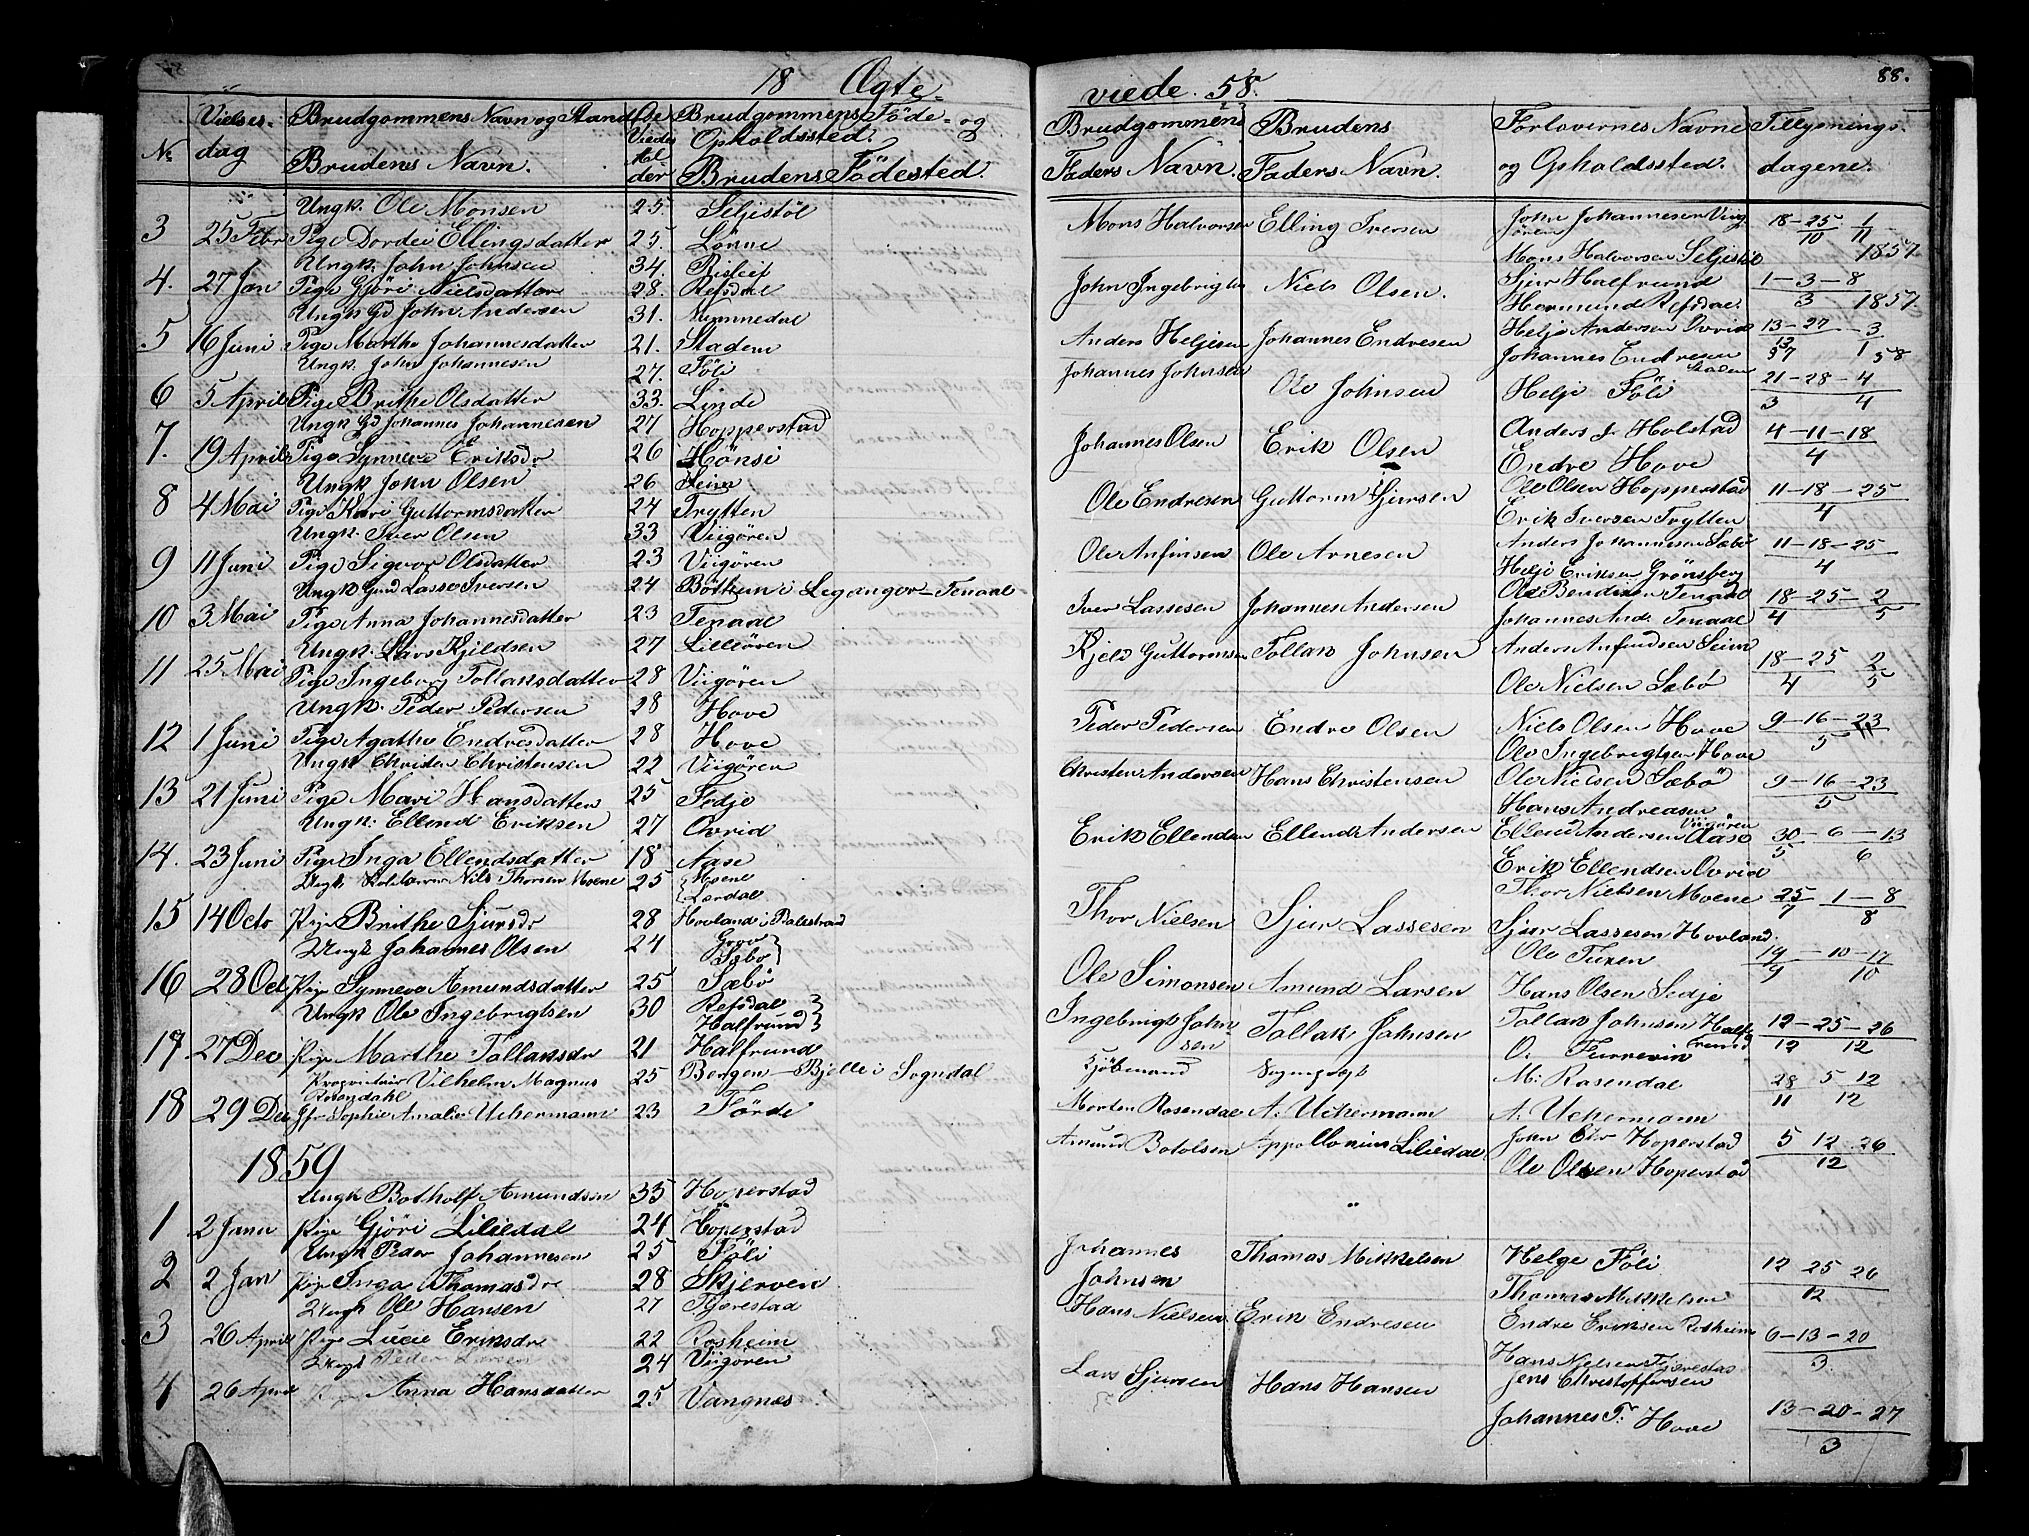 18 Ægte-
viede. 58.
88.
No
Vielses-
dag
Brudgommens Navn og Stand
Brudens Navn.
De
Viedes
Al
der
Brudgommens Föde- og
Opholdssted.
Brudens Födested.
Brudgommens
Faders Navn.
Brudens
Faders Navn.
Forlovernes Navne
og Opholdssted.
Tillysnings-
dagene.
Ungk. Ole Monsen 25. Seljestöl
3 25 Febr Pige Dordei Ellingsdatter 25. Lönne
Mons Halvorsen Elling Iversen John Johannesen Viig-
ören 18-25 1
10 11
Mons Halvorsen Seljestöl 1857
Ungk. John Johnsen 34. Risleif
4. 27 Jan Pige Gjöri Nielsdatter 28. Refsdal
John Ingebrigts Niels Olsen. Sjur Halfrund 1-3-8
Hermund Refsdal. 3 1857
Ungk Gd John Andersen 31. Nummedal
5 16 Juni Pige Marthe Johannesdatter 21. Stadem
Anders Heljesen Johannes Endresen Helje Andersen Övrid 13-27 3
Johannes Endresen 1 58
Stadem
Ungk. John Johannesen 27. Föli
6 5 April Pige Brithe Olsdatter 33. Linde
Johannes Johnsen Ole Johnsen Helje Föli 21-28-4
3 4
Ungk Gd Johannes Johannesen 27 Hopperstad
7. 19 April Pige Synneve Eriksdr 26 Hönsi
Johannes Olsen Erik Olsen Anders J. Holstad 4-11-18
Endre Hove 4
Ungk John Olsen 26 Seim
8 4 Mai Pige Kari Guttormsdatter 24 Trytten
Ole Endresen Guttorm Sjursen Ole Olsen Hopperstad 11-18-25
Erik Iversen Trytten 4
Ungk. Iver Olsen 33 Viigören
9 11 Juni Pige Sigvor Olsdatter 23 Viigören
Ole Anfinsen Ole Arnesen Anders Johannesen Sæbö 11-18-25
Helje Eriksen Grönsberg 4
Ungk Gmd Lasse Iversen 24 Böthun i Leganger-Tenaal
10 3 Mai Pige Anna Johannesdatter 23 Tenaal
Iver Lassesen Johannes Andersen Ole Bendixen Tenaal 18-25-2
Johannes And. Tenaal 4 5
Ungk. Lars Kjeldsen 27 Lilleören
11 25 Mai Pige Ingeborg Tollaksdatter 28 Viigören
Kjeld Guttormsen Tollak Johnsen Anders Anfindsen Seim 18-25 2
Ole Nielsen Sæbö 4 5
Ungk. Peder Pedersen 28 Hove
12 1 Juni Pige Agathe Endresdatter 28 Hove
Peder Pedersen Endre Olsen Niels Olsen Hove 9-16-23
Ole Ingebrigtsen Hove 5
Ungk Christen Christensen 22 Viigören
13 21 Juni Pige Mari Hansdatter 25 Fedje
Christen Andersen Hans Christensen Ole Nielsen Sæbö 9-16-23
Hans Andreasen 5
Viigören
Ungk. Ellend Eriksen 27 Övrid
14. 23 Juni Pige Inga Ellendsdatter 18 Aase
Erik Ellendsen Ellend Andersen Ellend Andersen Aase 30-6-13
Erik Ellendsen Övrid 5 6
Ungk Nils Thorsen Moene 25 Moene
Lærdal
15 14 Octo Pige Brithe Sjursdr 28 Hovland i Balestrand
Thor Nielsen Sjur Lassesen Thor Nielsen Moene 25 1-8
Sjur Lassesen Hovland. 7 8
Ungk Johannes Olsen 24 Grov
Sæbö
16 28 Oct Pige Synneve Amundsdatter 25 Sæbö
Ole Simonsen Amund Larsen Ole Turen 19-10-17
Hans Olsen Fedje 9 10
Ungk Ole Ingebrigtsen 30 Refsdal
Halfrund
17 27 Dec Pige Marthe Tollaksdr 21 Halfrund
Ingebrigt John-
sen Tollak Johnsen Tollak Johnsen Half-
rund 12-25-26
O. 12 12
Proprietair Vilhelm Magnus
Rosendahl 25 Bergen-Bjelle i Sogndal
18 29 Dec Jfr Sophie Amalie Uchermann 23 Förde
Kjöbmand
Morten Rosendal A. Uckermann M. Rosendal 28 5 12
A. Uchermann 11 12
1859
Ungk Botholf Amundsen 35 Hoperstad
1 2 Janu Pige Gjöri Liliedal 24 Hoperstad
Amund Botolsen Appollonius Liliedal John Hoperstad 5 12 26
Ole Olsen Hoperstad 12
Ungk Peder Johannesen 25 Föli
2 2 Jan Pige Inga Thomasdr 28 Skjerven
Johannes
Johnsen Thomas Mikkelsen Helge Föli 12 25 26
Thomas Mikkelsen 12
Ungk Ole Hansen 27 Tjærestad
3 26 April Pige Lucie Eriksdr 22 Rosheim
Hans Nielsen Erik Endresen Endre Eriksen Rosheim 6-13-20
Hans Nielsen Tjærestad 3
Ungk Peder Larsen 24 Viigören
4 26 April Pige Anna Hansdatter 25 Vangnes
Lars Sjursen Hans Hansen Jens Christoffersen
Johannes T. Hove 13-20-27
3